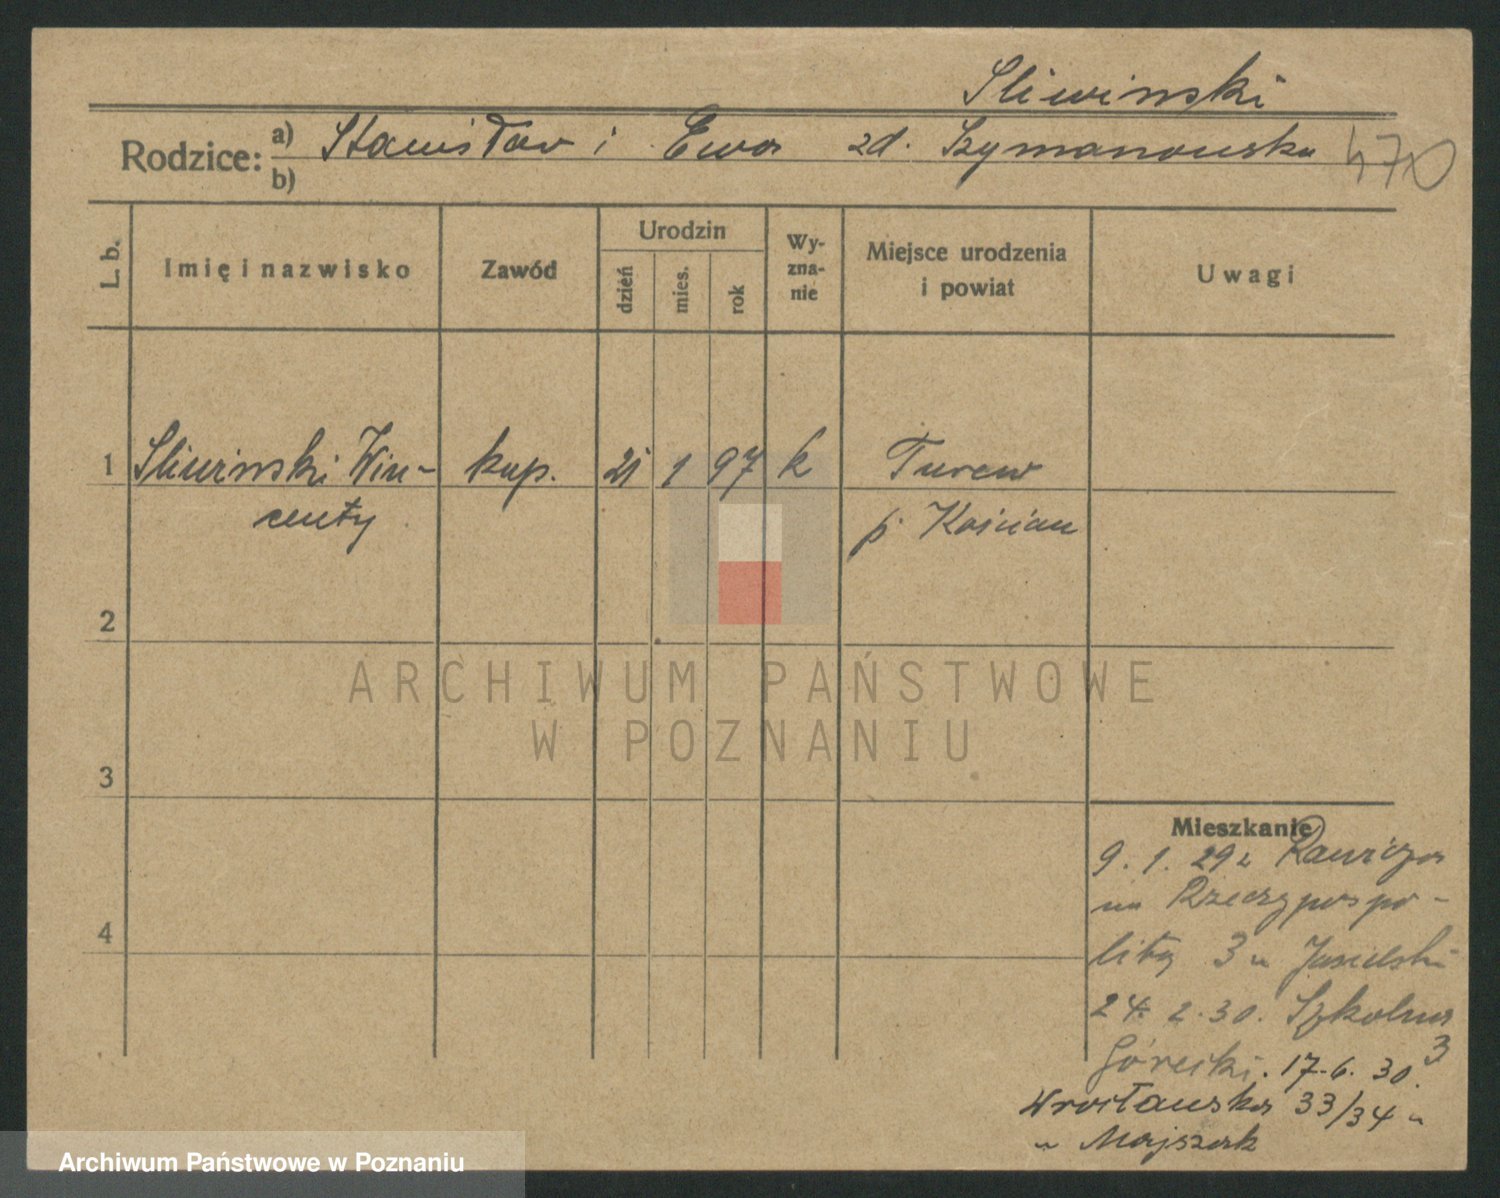 Sliwinski
Rodzice: a) Stanisław i Ewa zd. Szymanowska 470
b)
L. b. Imię i nazwisko Zawód Urodzin dzień mies. rok Wy-zna-nie Miejsce urodzenia i powiat Uwagi
1 Sliwinski Win- kup. 21 1 97 k Turew
centy p. Kościan
2
ARCHIWUM PAŃSTWOWE
W POZNANIU
3
Mieszkanie
9. 1. 29 z Rawicza
na Rzeczypospo-
litej 3 u Jasielski
4
24. 2. 30. Szkolna
3
Górecki. 17.6. 30.
Wrocławska 33/34
u Majszak
Archiwum Państwowe w Poznaniu